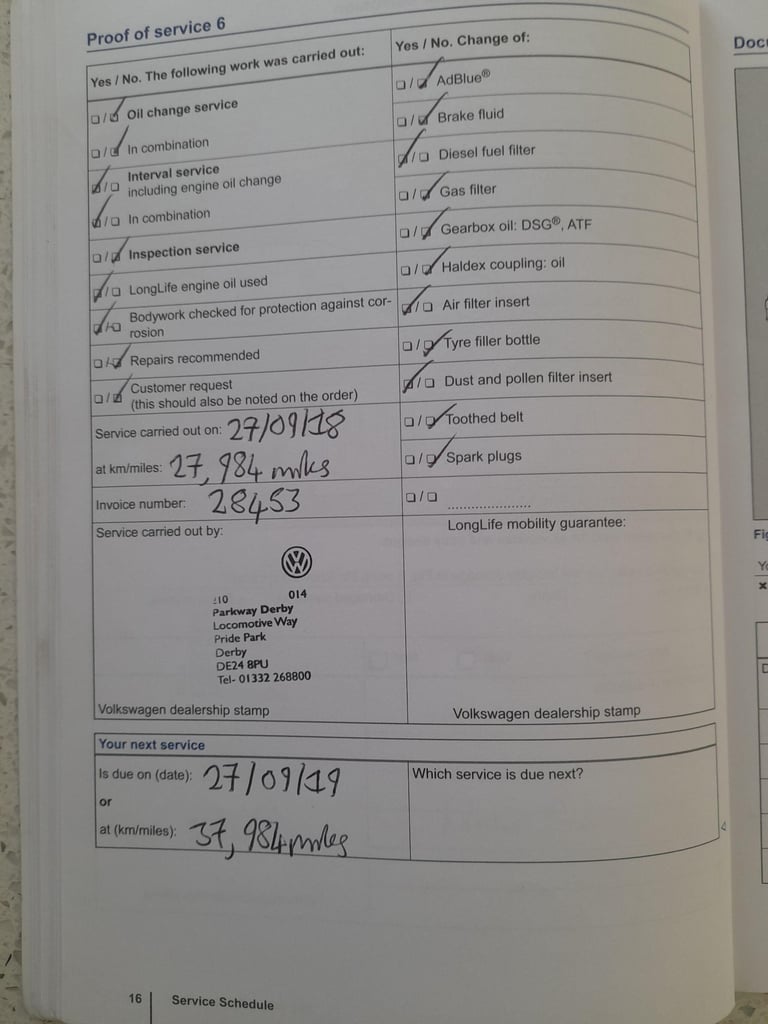 Proof of service 6
Yes / No. The following work was carried out:
Oil change service
In combination
Interval service
including engine oil change
In combination
Inspection service
LongLife engine oil used
Bodywork checked for protection against cor-
rosion
Repairs recommended
Customer request
(this should also be noted on the order)
Service carried out on: 27/09/18
at km/miles: 27,984 miles
Invoice number: 28453
Service carried out by:
:10 014
Parkway Derby
Locomotive Way
Pride Park
Derby
DE24 8PU
Tel- 01332 268800
Volkswagen dealership stamp
Yes / No. Change of:
AdBlue®
Brake fluid
Diesel fuel filter
Gas filter
Gearbox oil: DSG®, ATF
Haldex coupling: oil
Air filter insert
Tyre filler bottle
Dust and pollen filter insert
Toothed belt
Spark plugs
LongLife mobility guarantee:
Volkswagen dealership stamp
Your next service
Is due on (date): 27/09/19
or
at (km/miles): 37,984 miles
Which service is due next?
16 Service Schedule